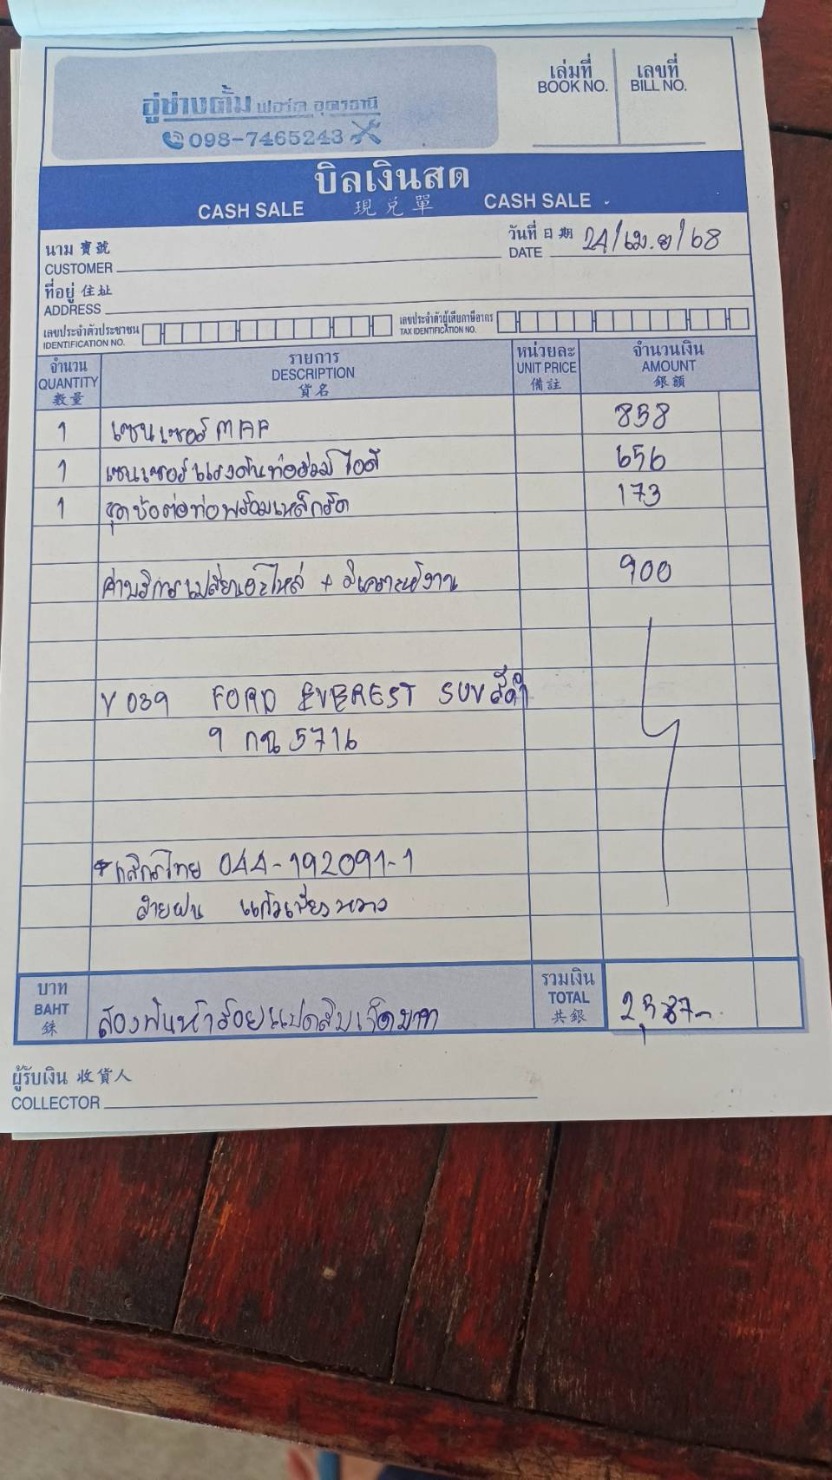 อู่ช่างตั้ม ฟอร์ด อุดรธานี
098-7465243
เล่มที่ เลขที่
BOOK NO. BILL NO.
บิลเงินสด
CASH SALE 現兑單 CASH SALE
นาม 寳號
CUSTOMER
วันที่ 日期 24/เม.ย/68
DATE
ที่อยู่ 住址
ADDRESS
เลขประจำตัวประชาชน เลขประจำตัวผู้เสียภาษีอากร
IDENTIFICATION NO. TAX IDENTIFICATION NO.
จำนวน รายการ หน่วยละ จำนวนเงิน
QUANTITY DESCRIPTION UNIT PRICE AMOUNT
數量 貨名 備註 銀額
1 เซนเซอร์ MAP 858
1 เซนเซอร์แรงดันท่อร่วมไอดี 656
1 ชุดข้อต่อท่อพร้อมเหล็กรัด 173
ค่าบริการเปลี่ยนอะไหล่ + วิเคราะห์งาน 900
V 039 FORD EVEREST SUV สีดำ
9 กฉ 5716
* กสิกรไทย 044-192091-1
สายฝน แก้วเขียวขวาง
บาท รวมเงิน
BAHT สองพันห้าร้อยแปดสิบเจ็ดบาท TOTAL 2,587-
銖 共銀
ผู้รับเงิน 收貨人
COLLECTOR